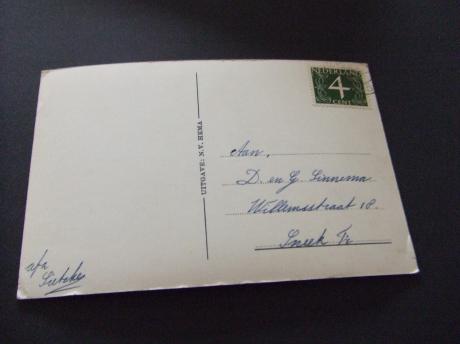 NEDERLAND
4
CENT
UITGAVE: N.V. HEMA
Aan,
D. en G. Sinnema
Willemsstraat 18.
Sneek Fr.
afz
Sietske